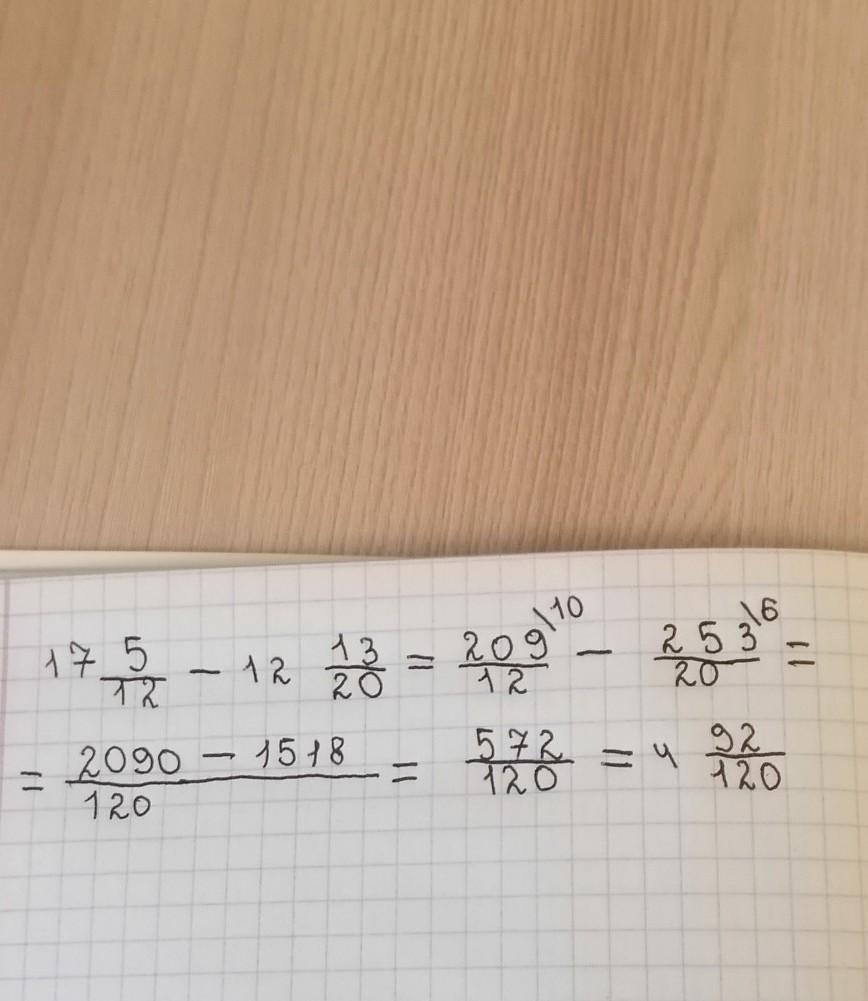 17 5/12 − 12 13/20 = 209\10/12 − 253\6/20 =
= 2090 − 1518/120 = 572/120 = 4 92/120